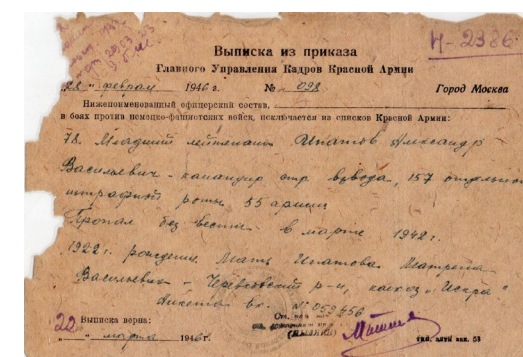 Н-2386
Выписка из приказа
Главного Управления Кадров Красной Армии
28 " февраля 1946 г. № 098 Город Москва
Нижепоименованный офицерский состав,
в боях против немецко-фашистских войск, исключается из списков Красной Армии:
78. Младший лейтенант Ипатов Александр
Васильевич - командир стр взвода, 157 отдельной
штрафной роты 55 армии
Пропал без вести в марте 1942 г.
1922 г. рождения Мать Ипатова Матрена
Васильевна - р-н, колхоз "Искра"
Анкета вх. № 059456
Выписка верна:
22 " марта 1946 г.